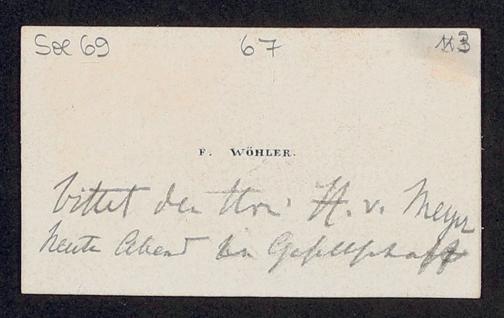 Soe 69 67 113
F. WÖHLER.
bittet den Hrn. H. v. Meyer
heute Abend in Gesellschaft